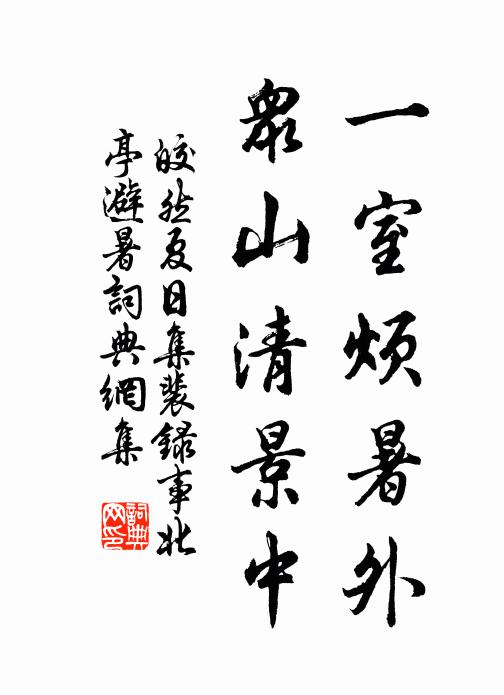 一室煩暑外
眾山清景中
皎然夏日集裴録事北
亭避暑詞典網集
詞典
网印